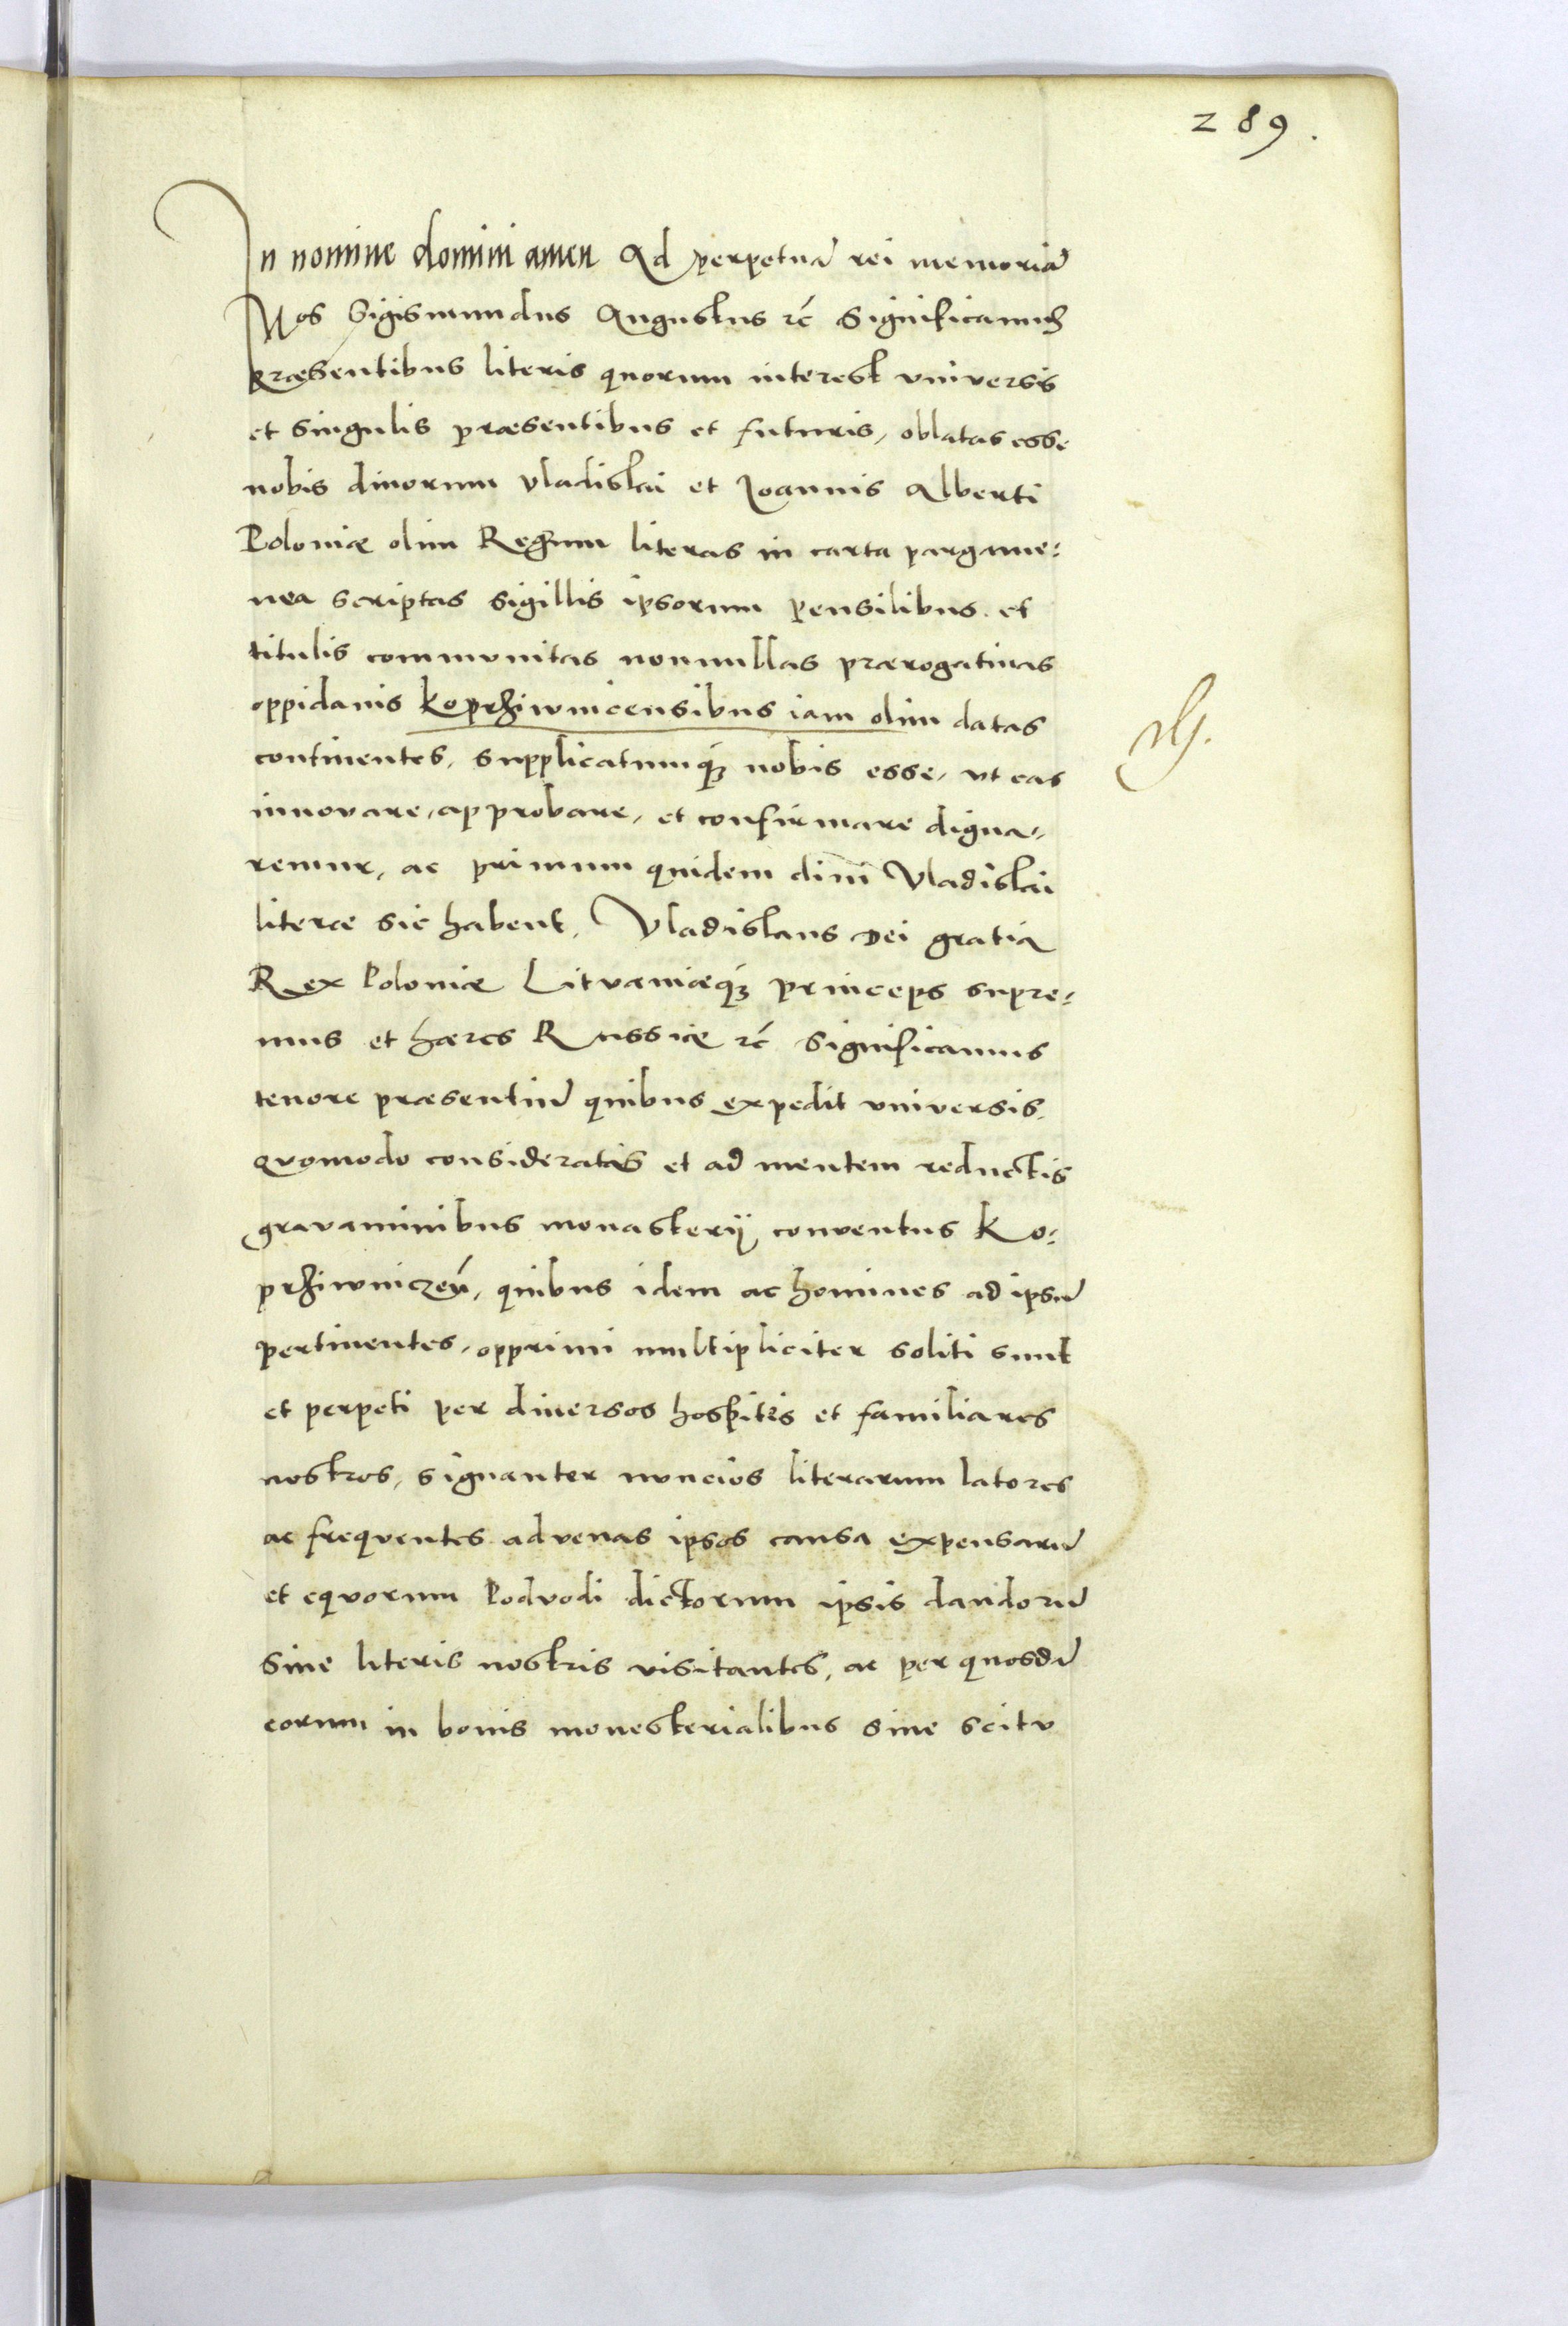 289.
In nomine domini amen Ad perpetuā rei memoriā
Nos Sigismundus Augustus rc̄ Significamus
præsentibus literis quorum interest vniversis
et singulis præsentibus et futuris, oblatas esse
nobis divorum Vladislai et Joannis Alberti
Poloniæ olim Regum literas in carta pargame:
nea scriptas sigillis ipsorum pensilibus et
titulis communitas nonnullas prærogativas
oppidanis koprziwnicensibus iam olim datas
continentes, supplicatumq́; nobis esse, vt eas
innovare, approbare, et confirmare digna,
remur, ac primum quidem divi Vladislai
literæ sic habent, Vladislaus Dei gratia
Rex Poloniæ Litvaniæq́; princeps supre:
mus et hæres Russiæ rc̄ Significamus
tenore præsentiū quibus expedit vniversis,
qvomodo consideratis et ad mentem reductis
gravaminibus monasterij conventus Ko:
prziwniczeń, quibus idem ac homines ad ipsū
pertinentes, opprimi multipliciter soliti sunt
et perpeti per diversos hospites et familiares
nostros, signanter nvncios literarum latores
ac freqventes advenas ipsos causa expensarū
et eqvorum Podvodi dictorum ipsis dandorū
sine literis nostris visitantes, ac per quosdā
eorum in bonis monesterialibus sine scitv